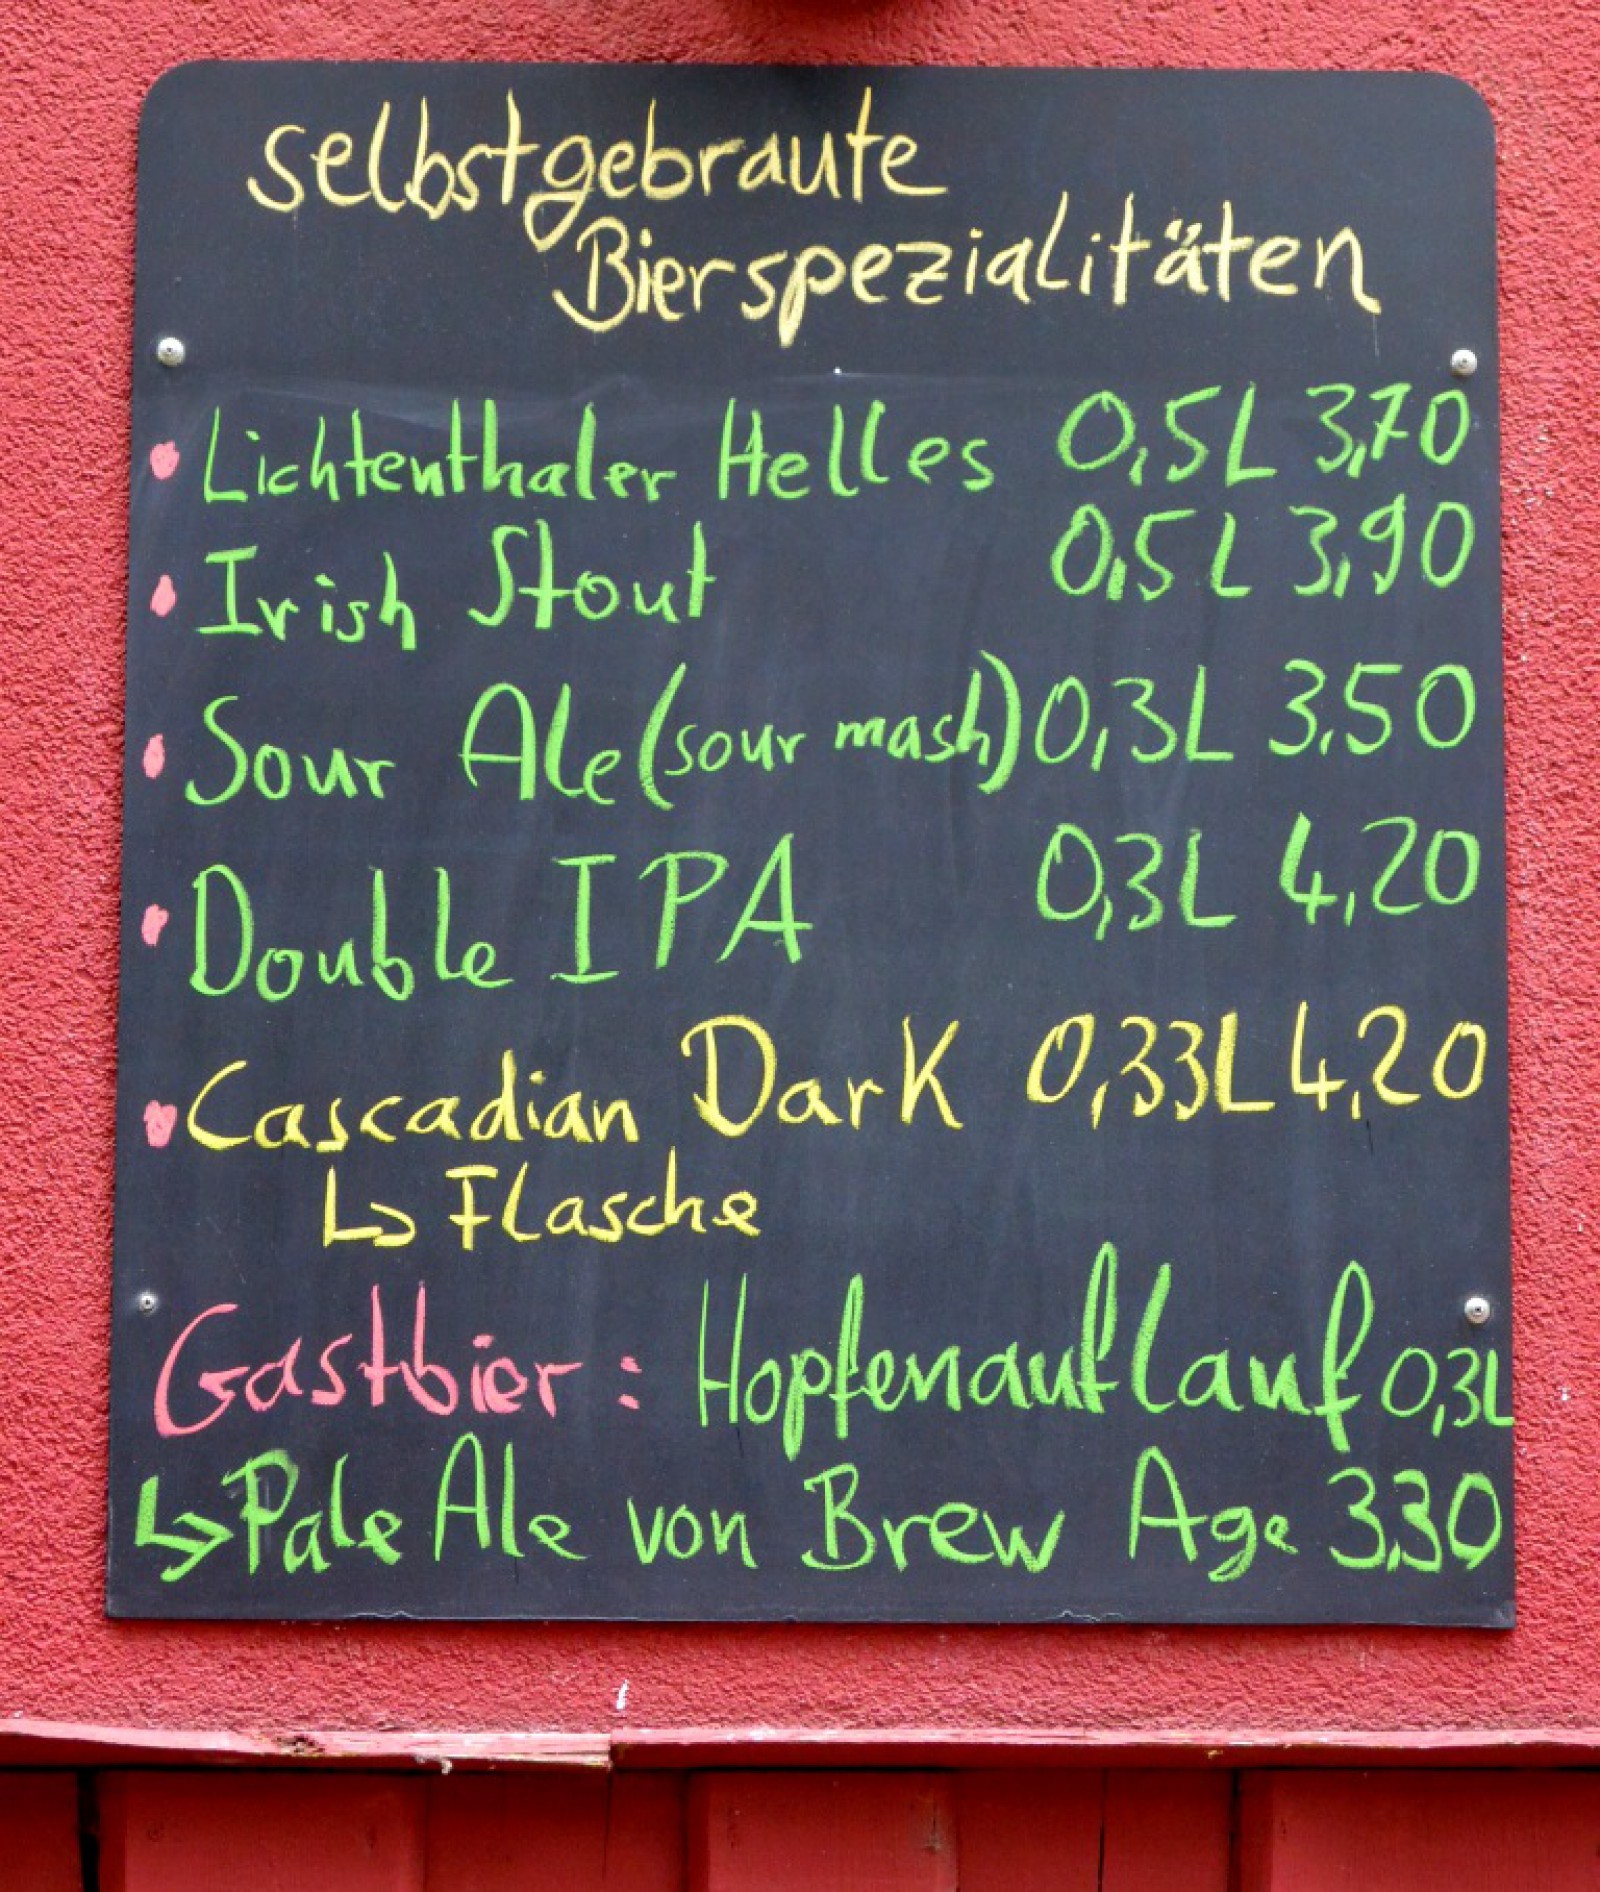 selbstgebraute
Bierspezialitäten
• Lichtenthaler Helles 0,5L 3,70
• Irish Stout 0,5L 3,90
• Sour Ale (sour mash) 0,3L 3,50
• Double IPA 0,3L 4,20
• Cascadian Dark 0,33L 4,20
↳ Flasche
Gastbier: Hopfenauflauf 0,3L
↳ Pale Ale von Brew Age 3,30